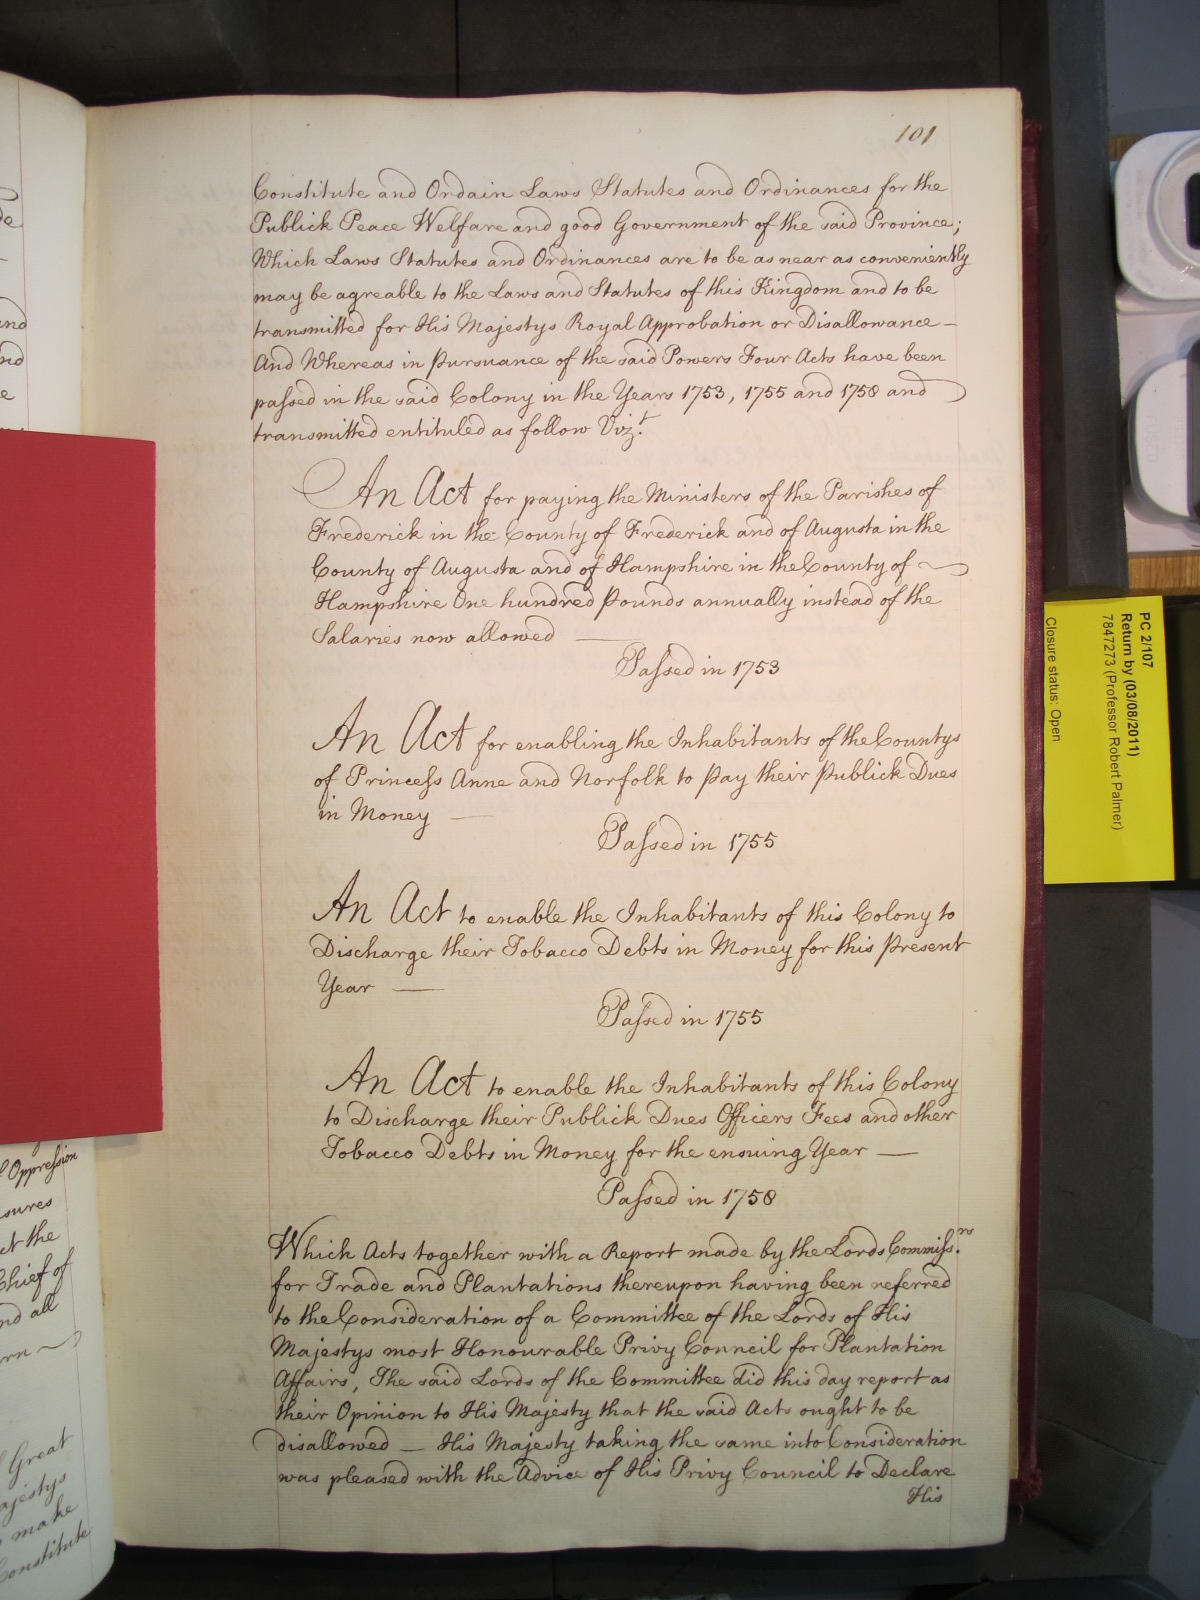 101
Constitute and Ordain Laws Statutes and Ordinances for the
Publick Peace Welfare and good Government of the said Province;
Which Laws Statutes and Ordinances are to be as near as conveniently
may be agreable to the Laws and Statutes of this Kingdom and to be
transmitted for His Majestys Royal Approbation or Disallowance —
And Whereas in pursuance of the said Powers Four Acts have been
passed in the said Colony in the Years 1753, 1755 and 1758 and
transmitted entituled as follow Viz.t
An Act for paying the Ministers of the Parishes of
Frederick in the County of Frederick and of Augusta in the
County of Augusta and of Hampshire in the County of
Hampshire One hundred pounds annually instead of the
Salaries now allowed —
Passed in 1753
An Act for enabling the Inhabitants of the Countys
of Princess Anne and Norfolk to pay their publick Dues
in Money —
Passed in 1755
An Act to enable the Inhabitants of this Colony to
Discharge their Tobacco Debts in Money for this present
Year —
Passed in 1755
An Act to enable the Inhabitants of this Colony
to Discharge their Publick Dues Officers Fees and other
Tobacco Debts in Money for the ensuing Year —
Passed in 1758
Which Acts together with a Report made by the Lords Commiss.rs
for Trade and Plantations thereupon having been referred
to the Consideration of a Committee of the Lords of His
Majestys most Honourable Privy Council for Plantation
Affairs, The said Lords of the Committee did this day report as
their Opinion to His Majesty that the said Acts ought to be
disallowed — His Majesty taking the same into Consideration
was pleased with the Advice of His Privy Council to Declare
His
PC 2/107
Return by (03/08/2011)
7847273 (Professor Robert Palmer)
Closure status: Open
and
Oppression
sures
the
Chief of
and all
Great
Majesty
make
Constitute